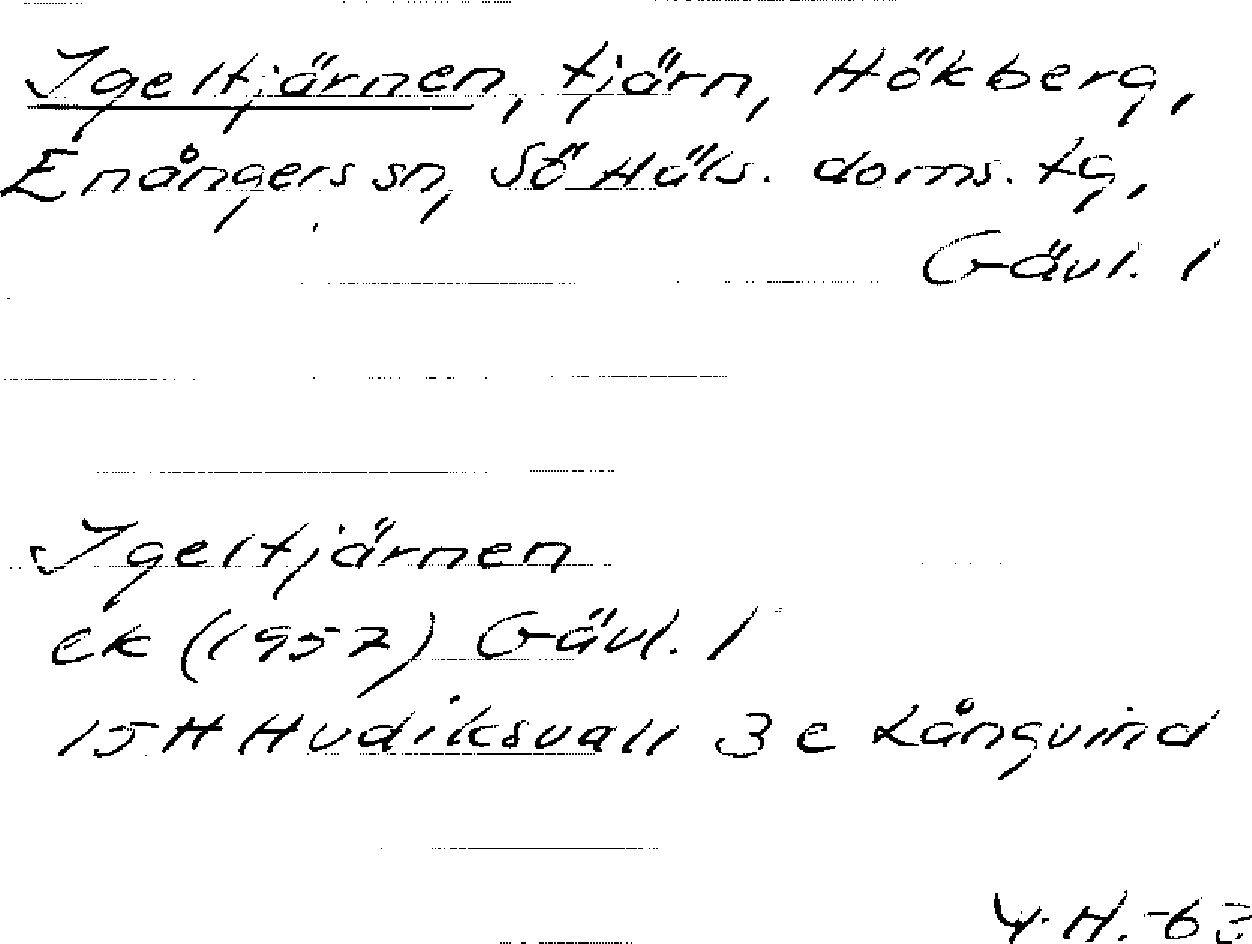 Igeltjärnen, tjärn, Hökberg,
Enångers sn, Sö Häls. doms. tg,
Gävl. l
Igeltjärnen
ek (1957) Gävl. l
15H Hudiksvall 3 e Långvind
Y.H.-63